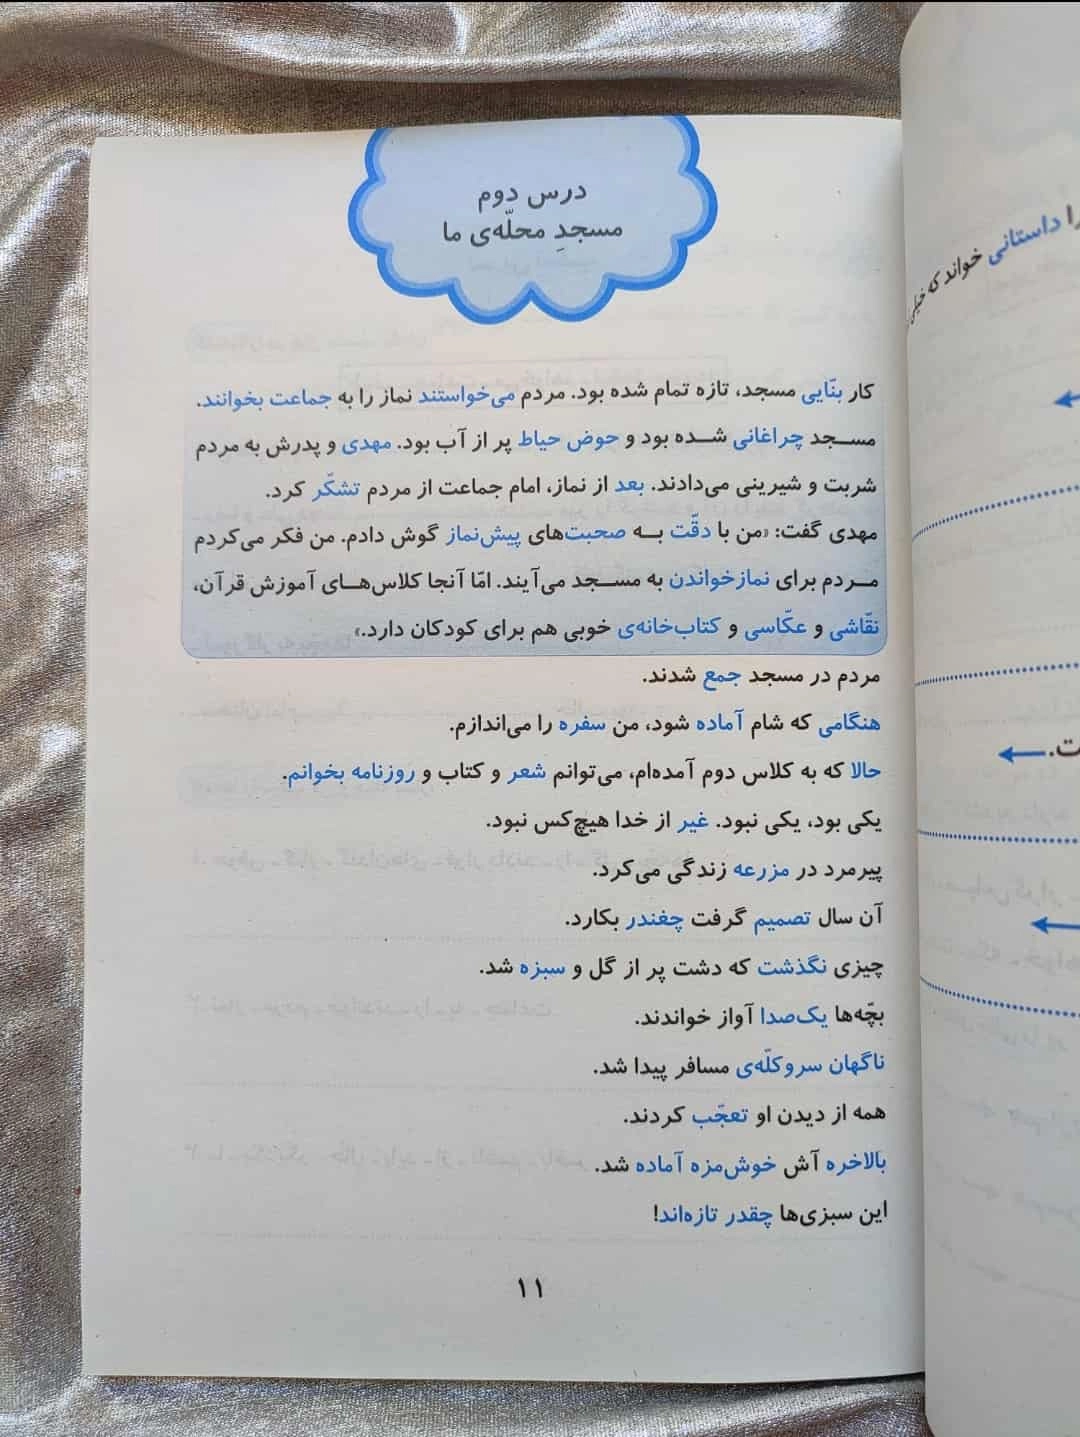 درس دوم
مسجدِ محلّه‌ی ما
کار بنّایی مسجد، تازه تمام شده بود. مردم می‌خواستند نماز را به جماعت بخوانند.
مسجد چراغانی شده بود و حوض حیاط پر از آب بود. مهدی و پدرش به مردم
شربت و شیرینی می‌دادند. بعد از نماز، امام جماعت از مردم تشکّر کرد.
مهدی گفت: «من با دقّت به صحبت‌های پیش‌نماز گوش دادم. من فکر می‌کردم
مردم برای نمازخواندن به مسجد می‌آیند. امّا آنجا کلاس‌های آموزش قرآن،
نقّاشی و عکّاسی و کتاب‌خانه‌ی خوبی هم برای کودکان دارد.»
مردم در مسجد جمع شدند.
هنگامی که شام آماده شود، من سفره را می‌اندازم.
حالا که به کلاس دوم آمده‌ام، می‌توانم شعر و کتاب و روزنامه بخوانم.
یکی بود، یکی نبود. غیر از خدا هیچ‌کس نبود.
پیرمرد در مزرعه زندگی می‌کرد.
آن سال تصمیم گرفت چغندر بکارد.
چیزی نگذشت که دشت پر از گل و سبزه شد.
بچّه‌ها یک‌صدا آواز خواندند.
ناگهان سروکلّه‌ی مسافر پیدا شد.
همه از دیدن او تعجّب کردند.
بالاخره آش خوش‌مزه آماده شد.
این سبزی‌ها چقدر تازه‌اند!
۱۱
را داستانی خواند که خیلی
ت.